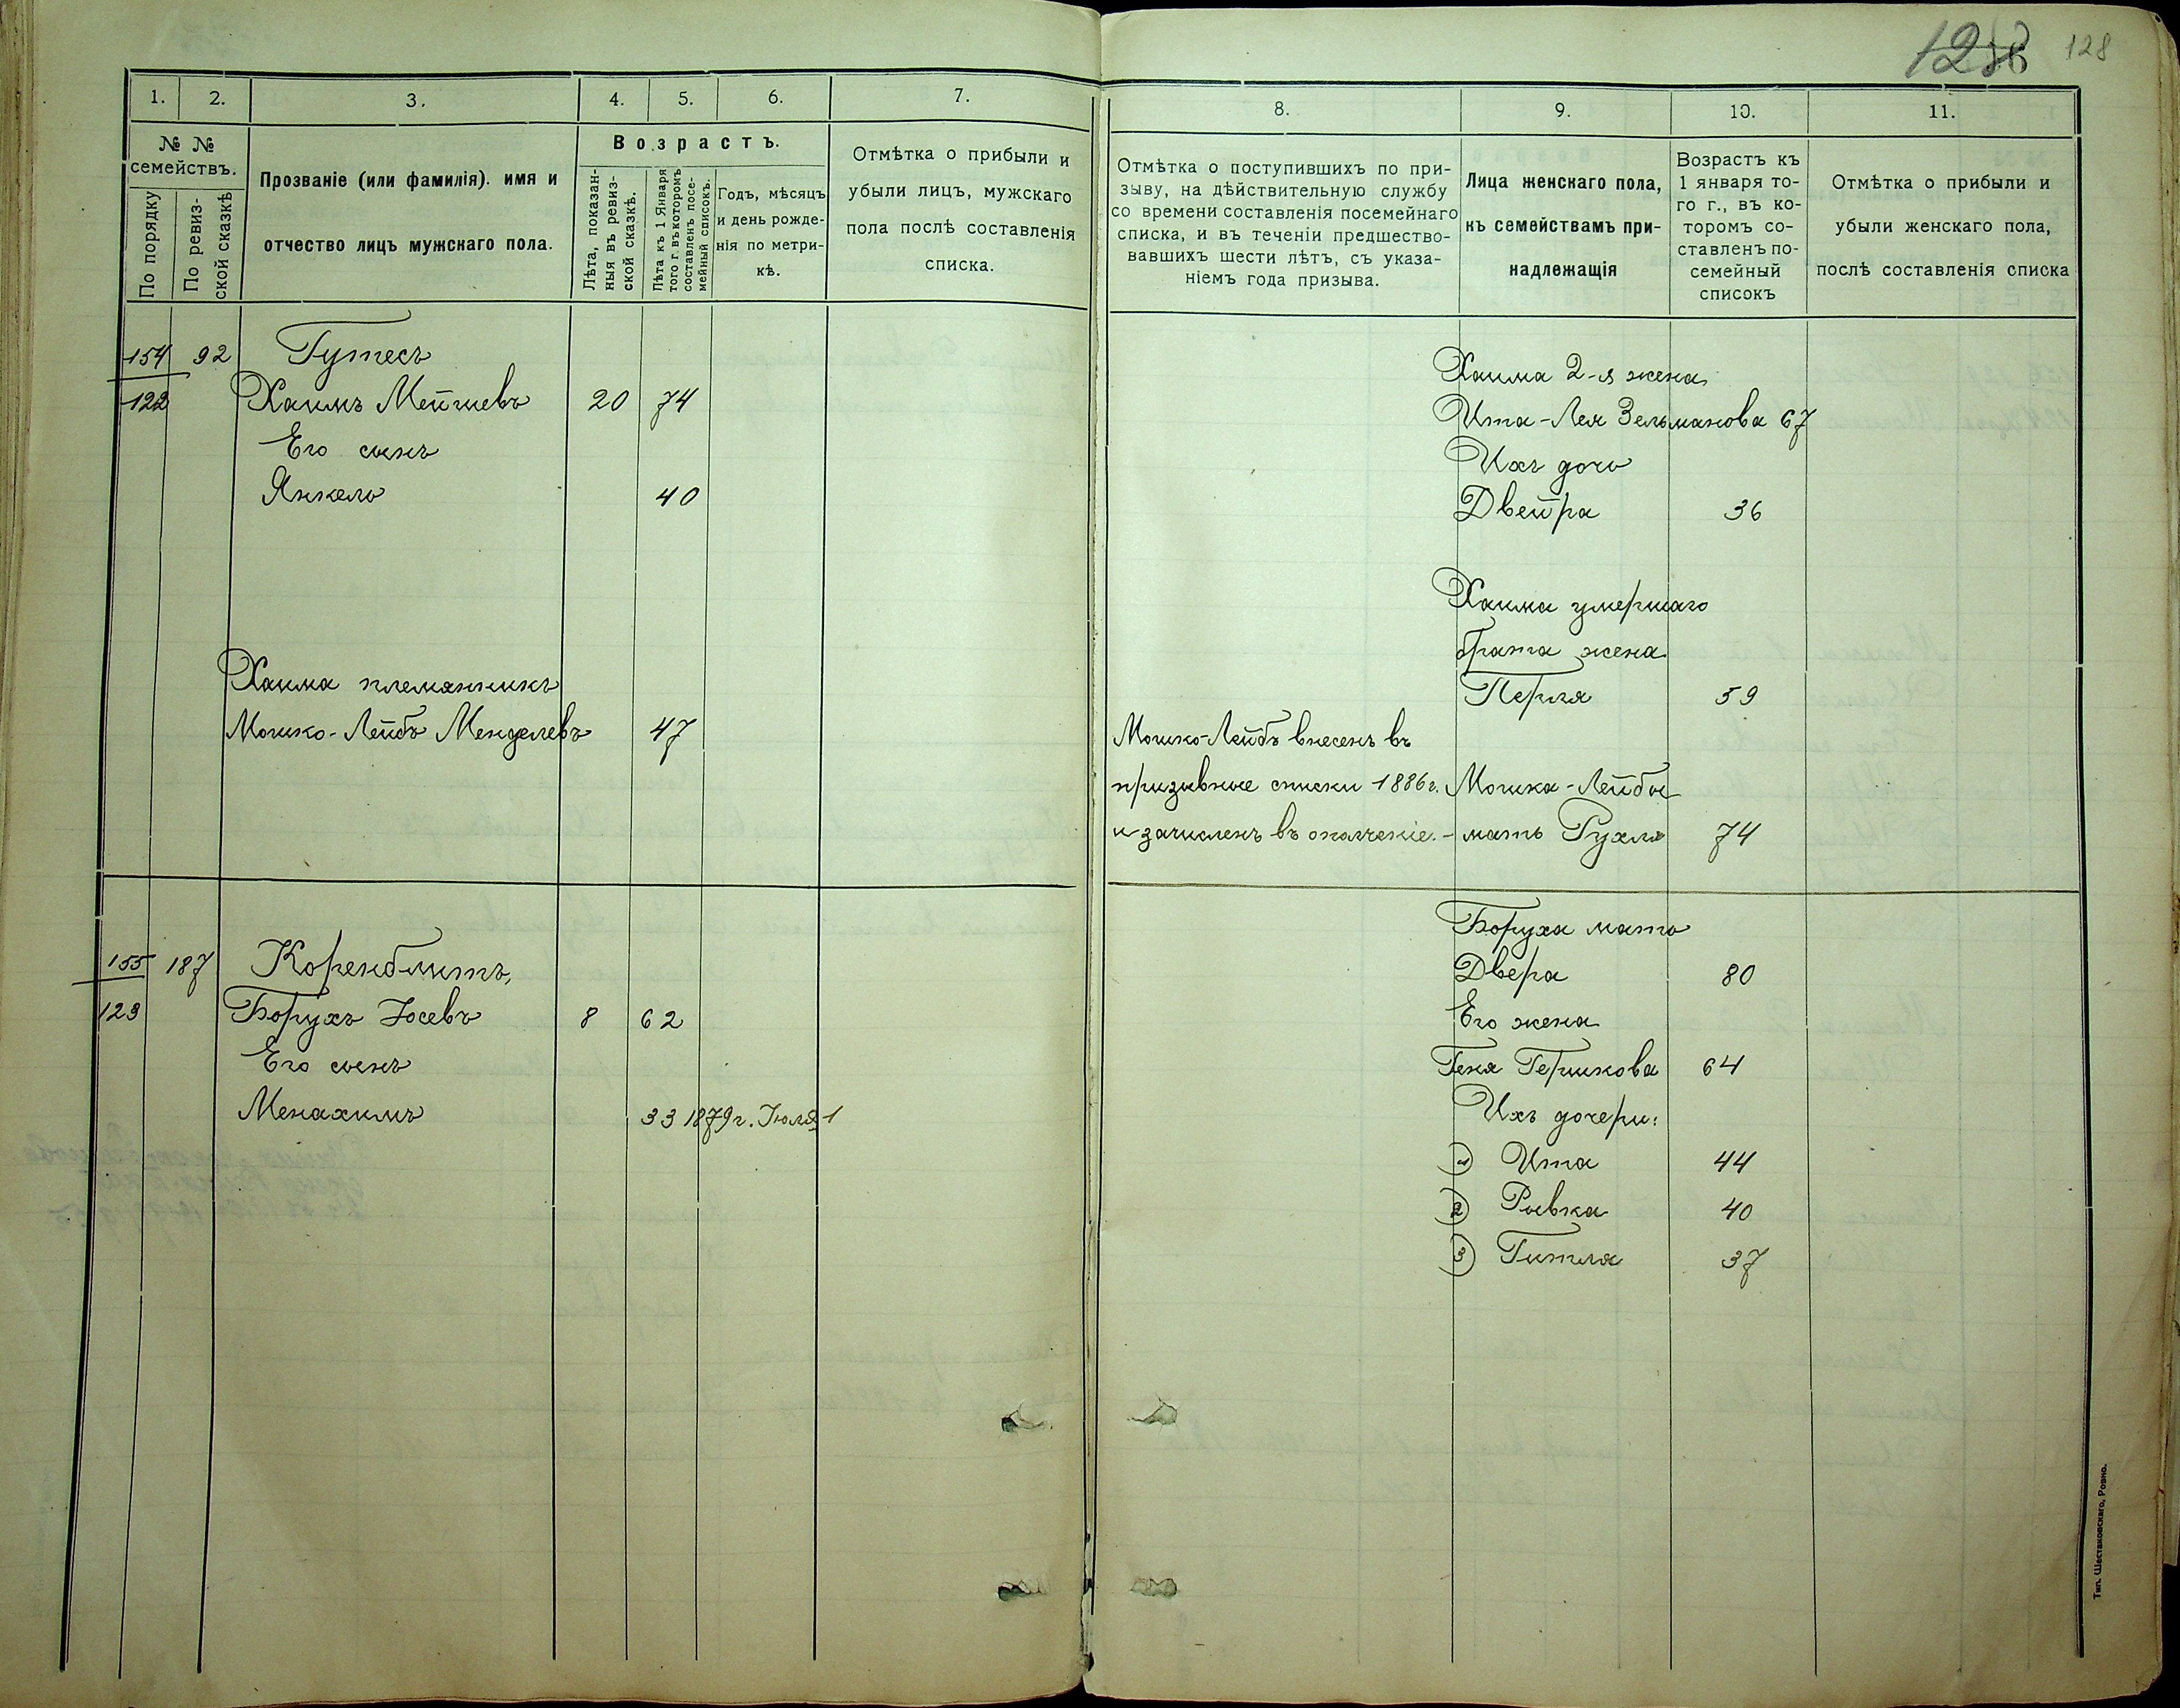 128
1. 2. 3. 4. 5. 6. 7.
№ №
семействъ.
По порядку
По ревиз-
ской сказкѣ
Прозваніе (или фамилія). имя и
отчество лицъ мужскаго пола.
Возрастъ.
Лѣта, показан-
ныя въ ревиз-
ской сказкѣ.
Лѣта къ 1 Января
того г. въ которомъ
составленъ посе-
мейный списокъ.
Годъ, мѣсяцъ
и день рожде-
нія по метри-
кѣ.
Отмѣтка о прибыли и
убыли лицъ, мужскаго
пола послѣ составленія
списка.
154 92 Гутесъ
122 Хаимъ Мейшевъ 20 74
Его сынъ
Янкель 40
Хаима племянникъ
Мошко-Лейбъ Менделевъ 47
155 187 Коренблитъ,
123 Борухъ Іосевъ 8 62
Его сынъ
Менахимъ 33 1879г. Іюля 1
8. 9. 10. 11.
Отмѣтка о поступившихъ по при-
зыву, на дѣйствительную службу
со времени составленія посемейнаго
списка, и въ теченіи предшество-
вавшихъ шести лѣтъ, съ указа-
ніемъ года призыва.
Лица женскаго пола,
къ семействамъ при-
надлежащія
Возрастъ къ
1 января то-
го г., въ ко-
торомъ со-
ставленъ по-
семейный
списокъ
Отмѣтка о прибыли и
убыли женскаго пола,
послѣ составленія списка
Хаима 2-я жена
Ита-Лея Зельманова 67
Ихъ дочь
Двейра 36
Хаима умершаго
брата жена
Перля 59
Мошко-Лейбъ внесенъ въ
призывные списки 1886г. Мошка-Лейбы
и зачисленъ въ ополченіе.- мать Рухля 74
Боруха мать
Двера 80
Его жена
Геня Гершкова 64
Ихъ дочери:
1) Ита 44
2) Ривка 40
3) Гитля 37
Тип. Шестаковскаго, Ровно.